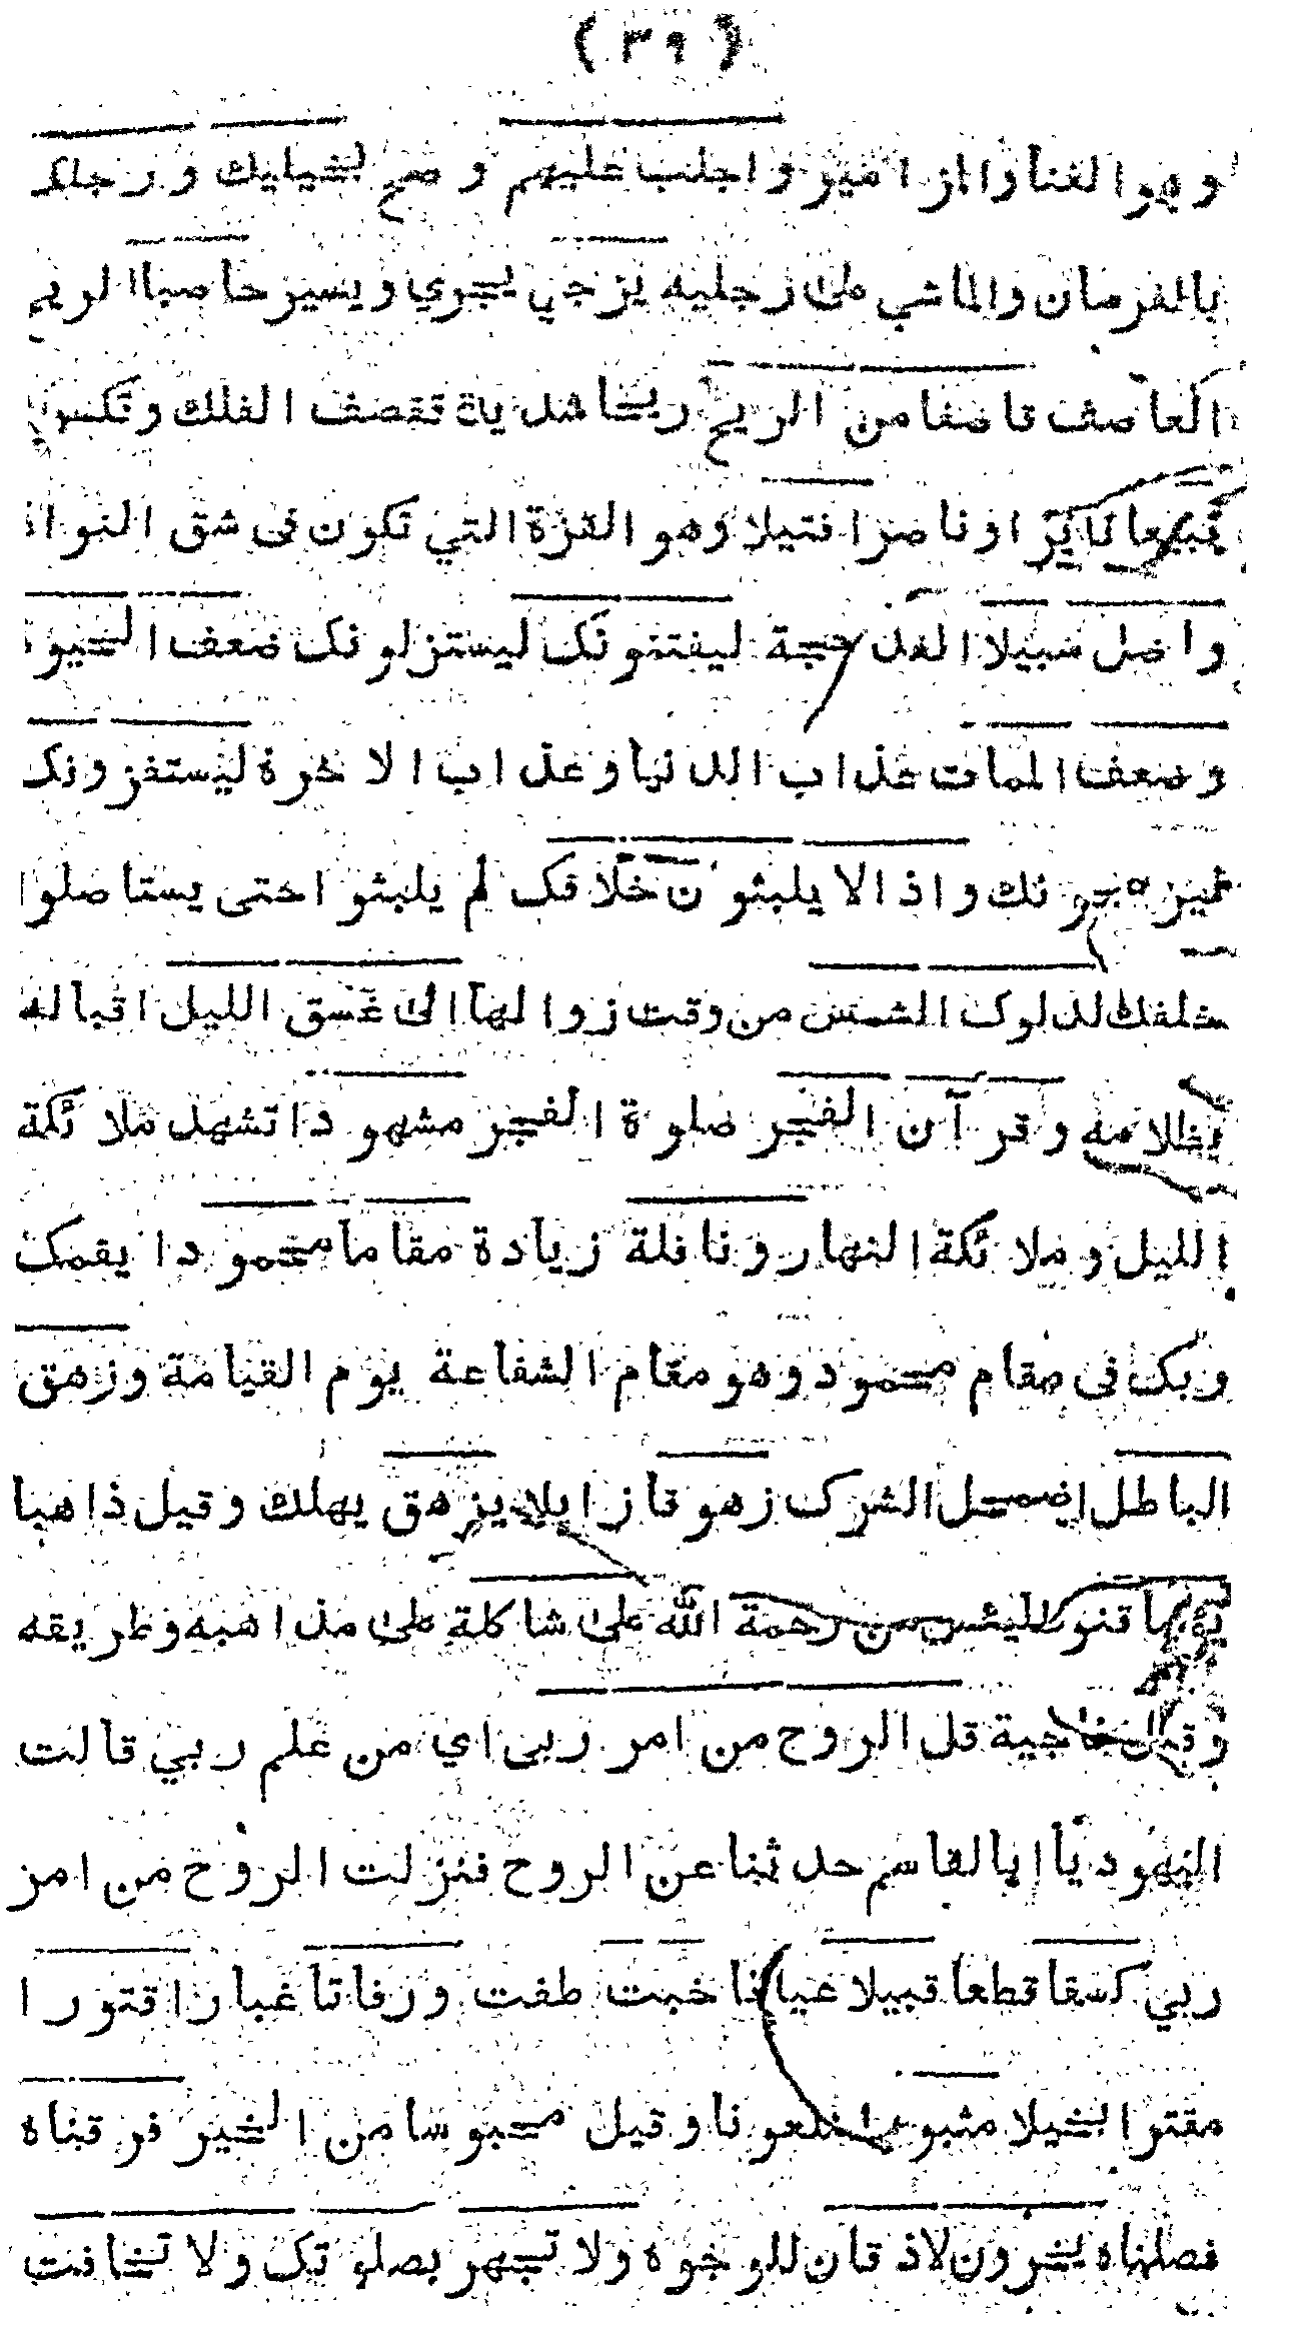 (٣٩)
وهوا لغنا والمزامير واجلب عليهم وصح بخيليك ورجلك
بالفرسان والماشي على رجليه يزجي يجري ويسير حاصبا الريح
العاصف قاصفا من الريح ريحا شديدة تقصف الفلك وتكسر
تبيعا ثايرا وناصرا فتيلا وهو القشرة التي تكون فى شق النواة
واضل سبيلا ابعد حجة ليفتنونك ليستزلونك ضعف الحيوة
وضعف الممات عذاب الدنيا وعذاب الاخرة ليستفزونك
يخرجونك واذالا يلبثون خلافك لم يلبثوا حتى يستاصلوا
خلفك لدلوك الشمس من وقت زوالها الى غسق الليل اقباله
بظلامه وقرآن الفجر صلوة الفجر مشهودا تشهد ملائكة
الليل وملائكة النهار ونافلة زيادة مقاما محمودا يقمك
ربك فى مقام محمود وهو مقام الشفاعة يوم القيامة وزهق
الباطل اضمحل الشرك زهوقا زايلا يزهق يهلك وقيل ذاهبا
قنوطا ليئس من رحمة الله على شاكلة على مذاهبه وطريقه
وقيل ناحية قل الروح من امر ربى اي من علم ربي قالت
اليهود يا ابالقاسم حدثنا عن الروح فنزلت الروح من امر
ربي كسفا قطعا قبيلا عيانا خبت طفت ورفاتا غبارا قتورا
مقترا بخيلا مثبورا ملعونا وقيل محبوسا من الخير فرقناه
فصلناه يخرون لاذقان للوجوه ولا تجهر بصلوتك ولا تخافت